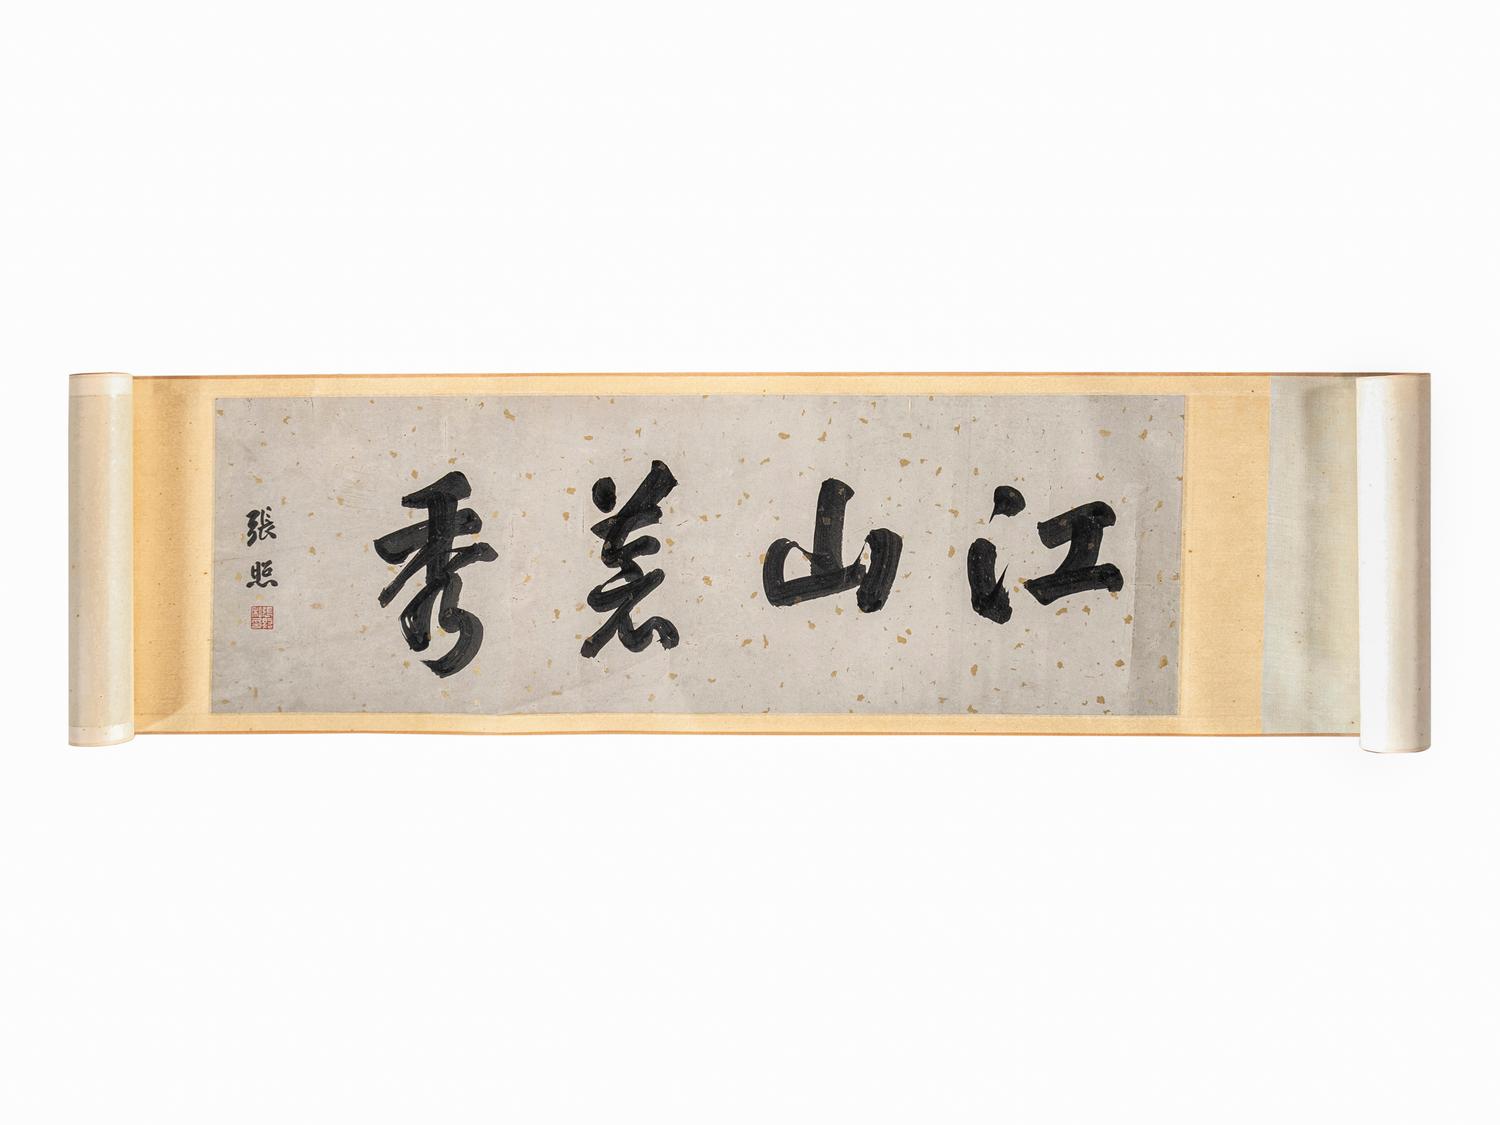 江山秀
張照